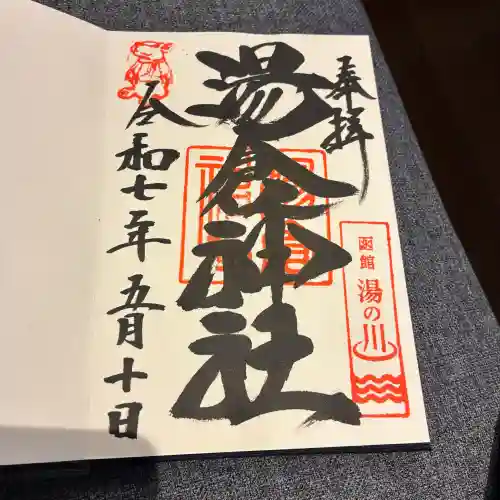 奉拝
湯倉神社
令和七年五月十日
函館
湯の川